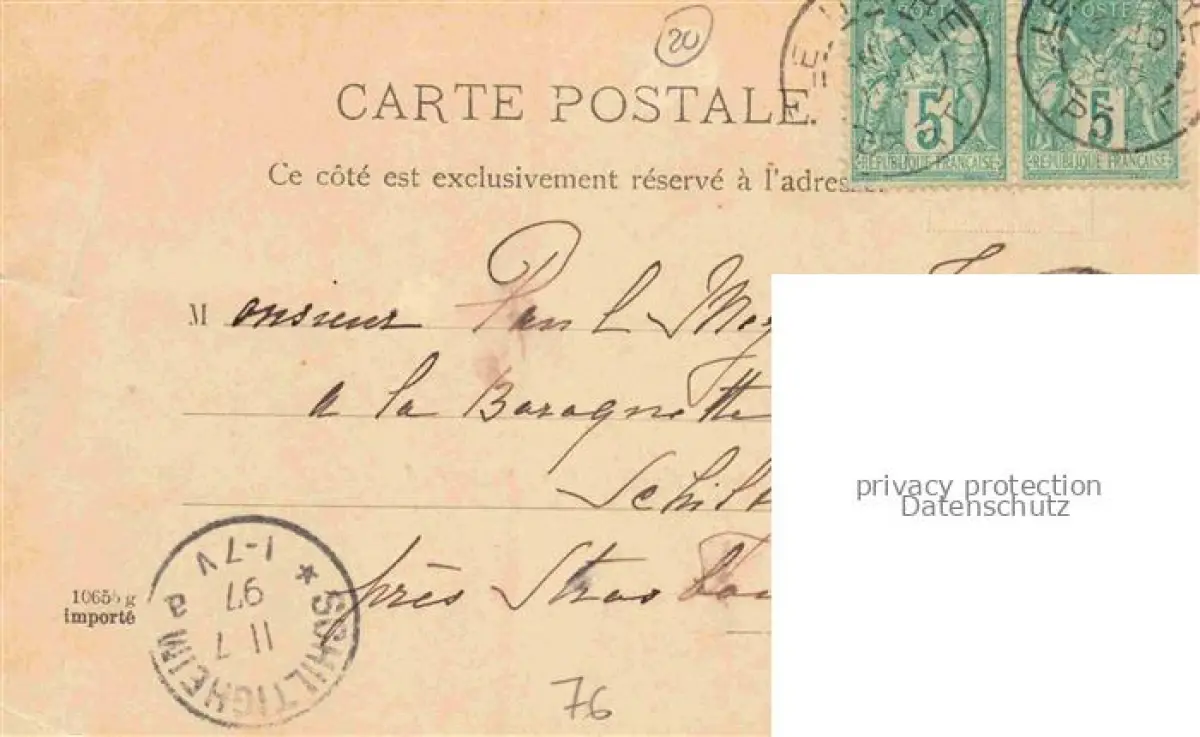 20
POSTE POSTE
5 5
RÉPUBLIQUE FRANÇAISE RÉPUBLIQUE FRANÇAISE
CARTE POSTALE.
Ce côté est exclusivement réservé à l'adresse.
Monsieur Paul
a la Baragnette
Schilt
près Strasbou
privacy protection
Datenschutz
SCHILTIGHEIM a
11 7
97
1-7 V
10655 g
importé
76